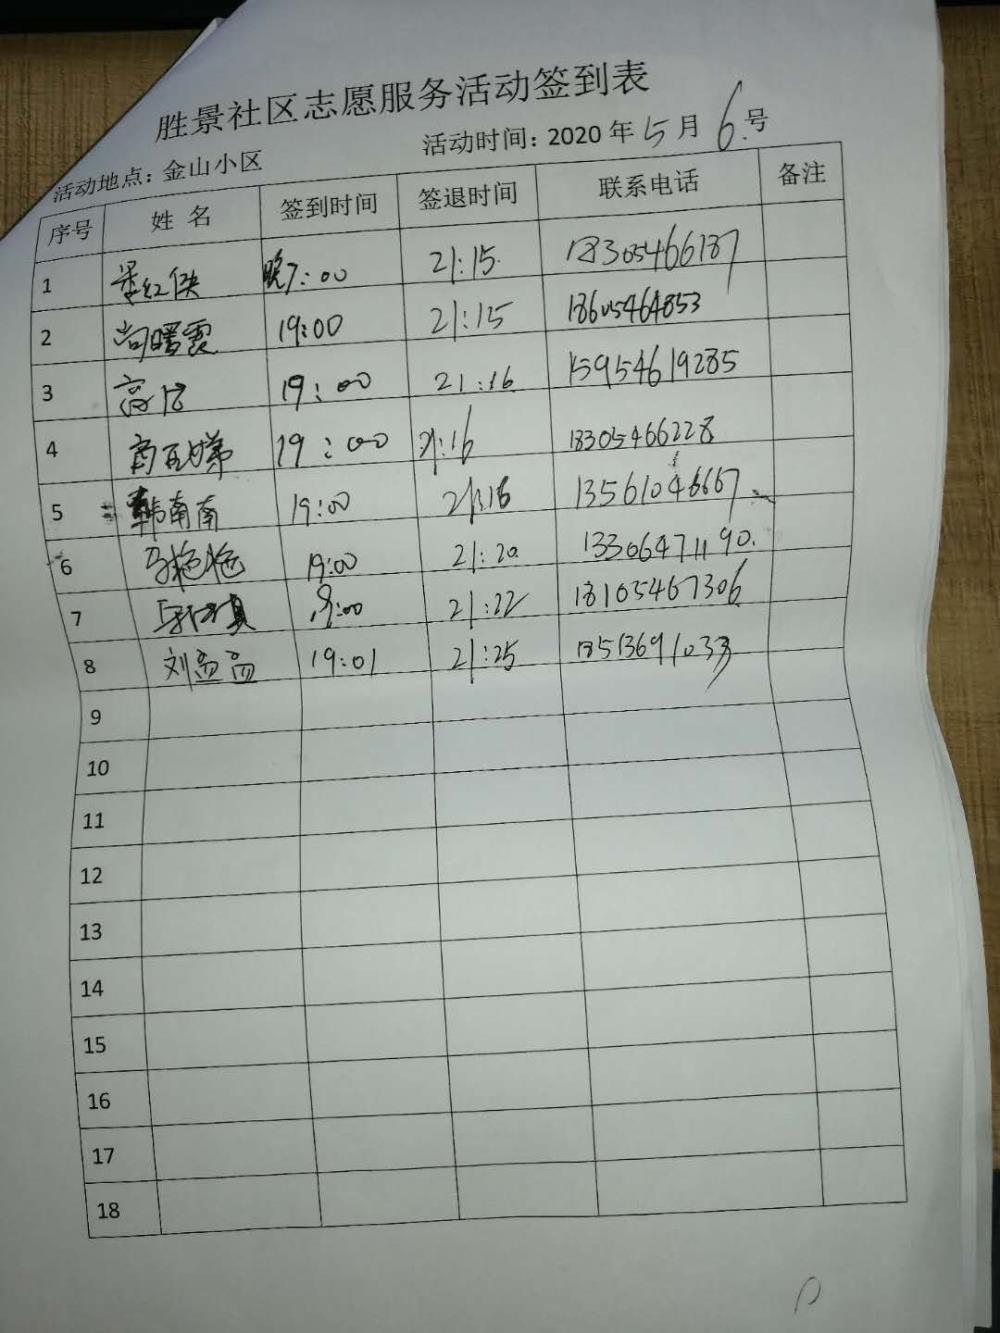 胜景社区志愿服务活动签到表
活动地点：金山小区 活动时间：2020年5月6号
序号 姓 名 签到时间 签退时间 联系电话 备注
1 晚7:00 21:15 18305466187
2 尚暖霞 19:00 21:15 18605464853
3 高 19:00 21:16 15954619285
4 19:00 21:16 18305466228
5 韩南南 19:00 21:16 13561046667
6 马艳艳 19:00 21:20 13306471190
7 19:00 21:22 18105467306
8 刘孟孟 19:01 21:25 18513691033
9
10
11
12
13
14
15
16
17
18